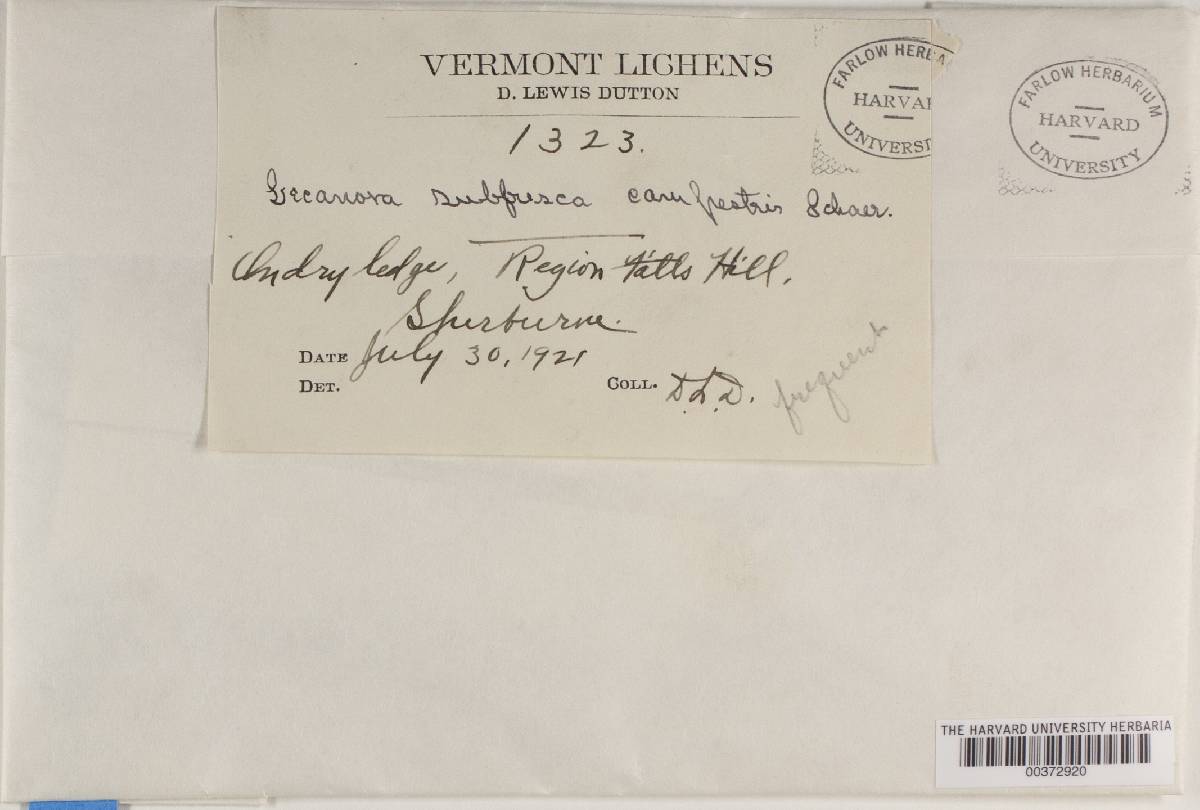 VERMONT LICHENS
D. LEWIS DUTTON
1323.
Lecanora subfusca campestris Schaer.
On dry ledge, Region Falls Hill,
Sherburne.
DATE July 30, 1921
DET.
COLL. D.L.D.
frequent
FARLOW HERBA
HARVAR
UNIVERSI
FARLOW HERBARIUM
HARVARD
UNIVERSITY
THE HARVARD UNIVERSITY HERBARIA
00372920